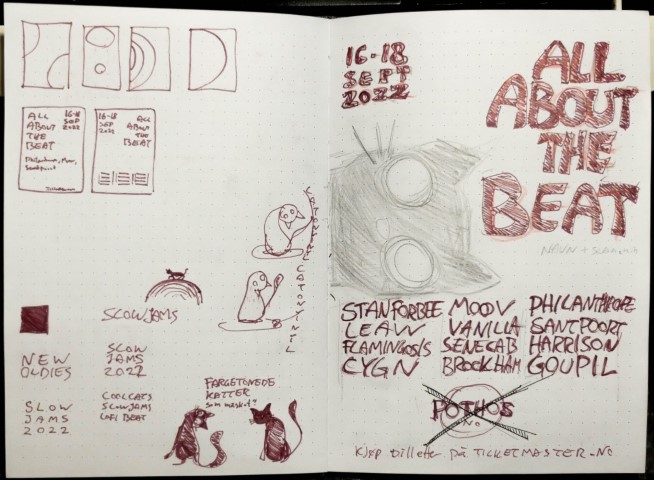 ALL
ABOUT
THE
BEAT
16-18
SEP
2022
Philanthrope, Moov,
Santpoort
16-18
SEP
2022
ALL
ABOUT
THE
BEAT
SLOW JAMS
NEW
OLDIES
SLOW
JAMS
2022
SLOW
JAMS
2022
COOLCATS
SLOWJAMS
LOFI BEAT
FARGETONEDE
KATTER
som maskot?
16-18
SEPT
2022
ALL
ABOUT
THE
BEAT
NAVN +
STANFORBEE MOOV PHILANTHROPE
LEAW VANILLA SANTPOORT
FLAMINGOSIS SENECAB HARRISON
CYGN BROCKHAM GOUPIL
POTHOS
NO
Kjøp billetter på TICKETMASTER.NO